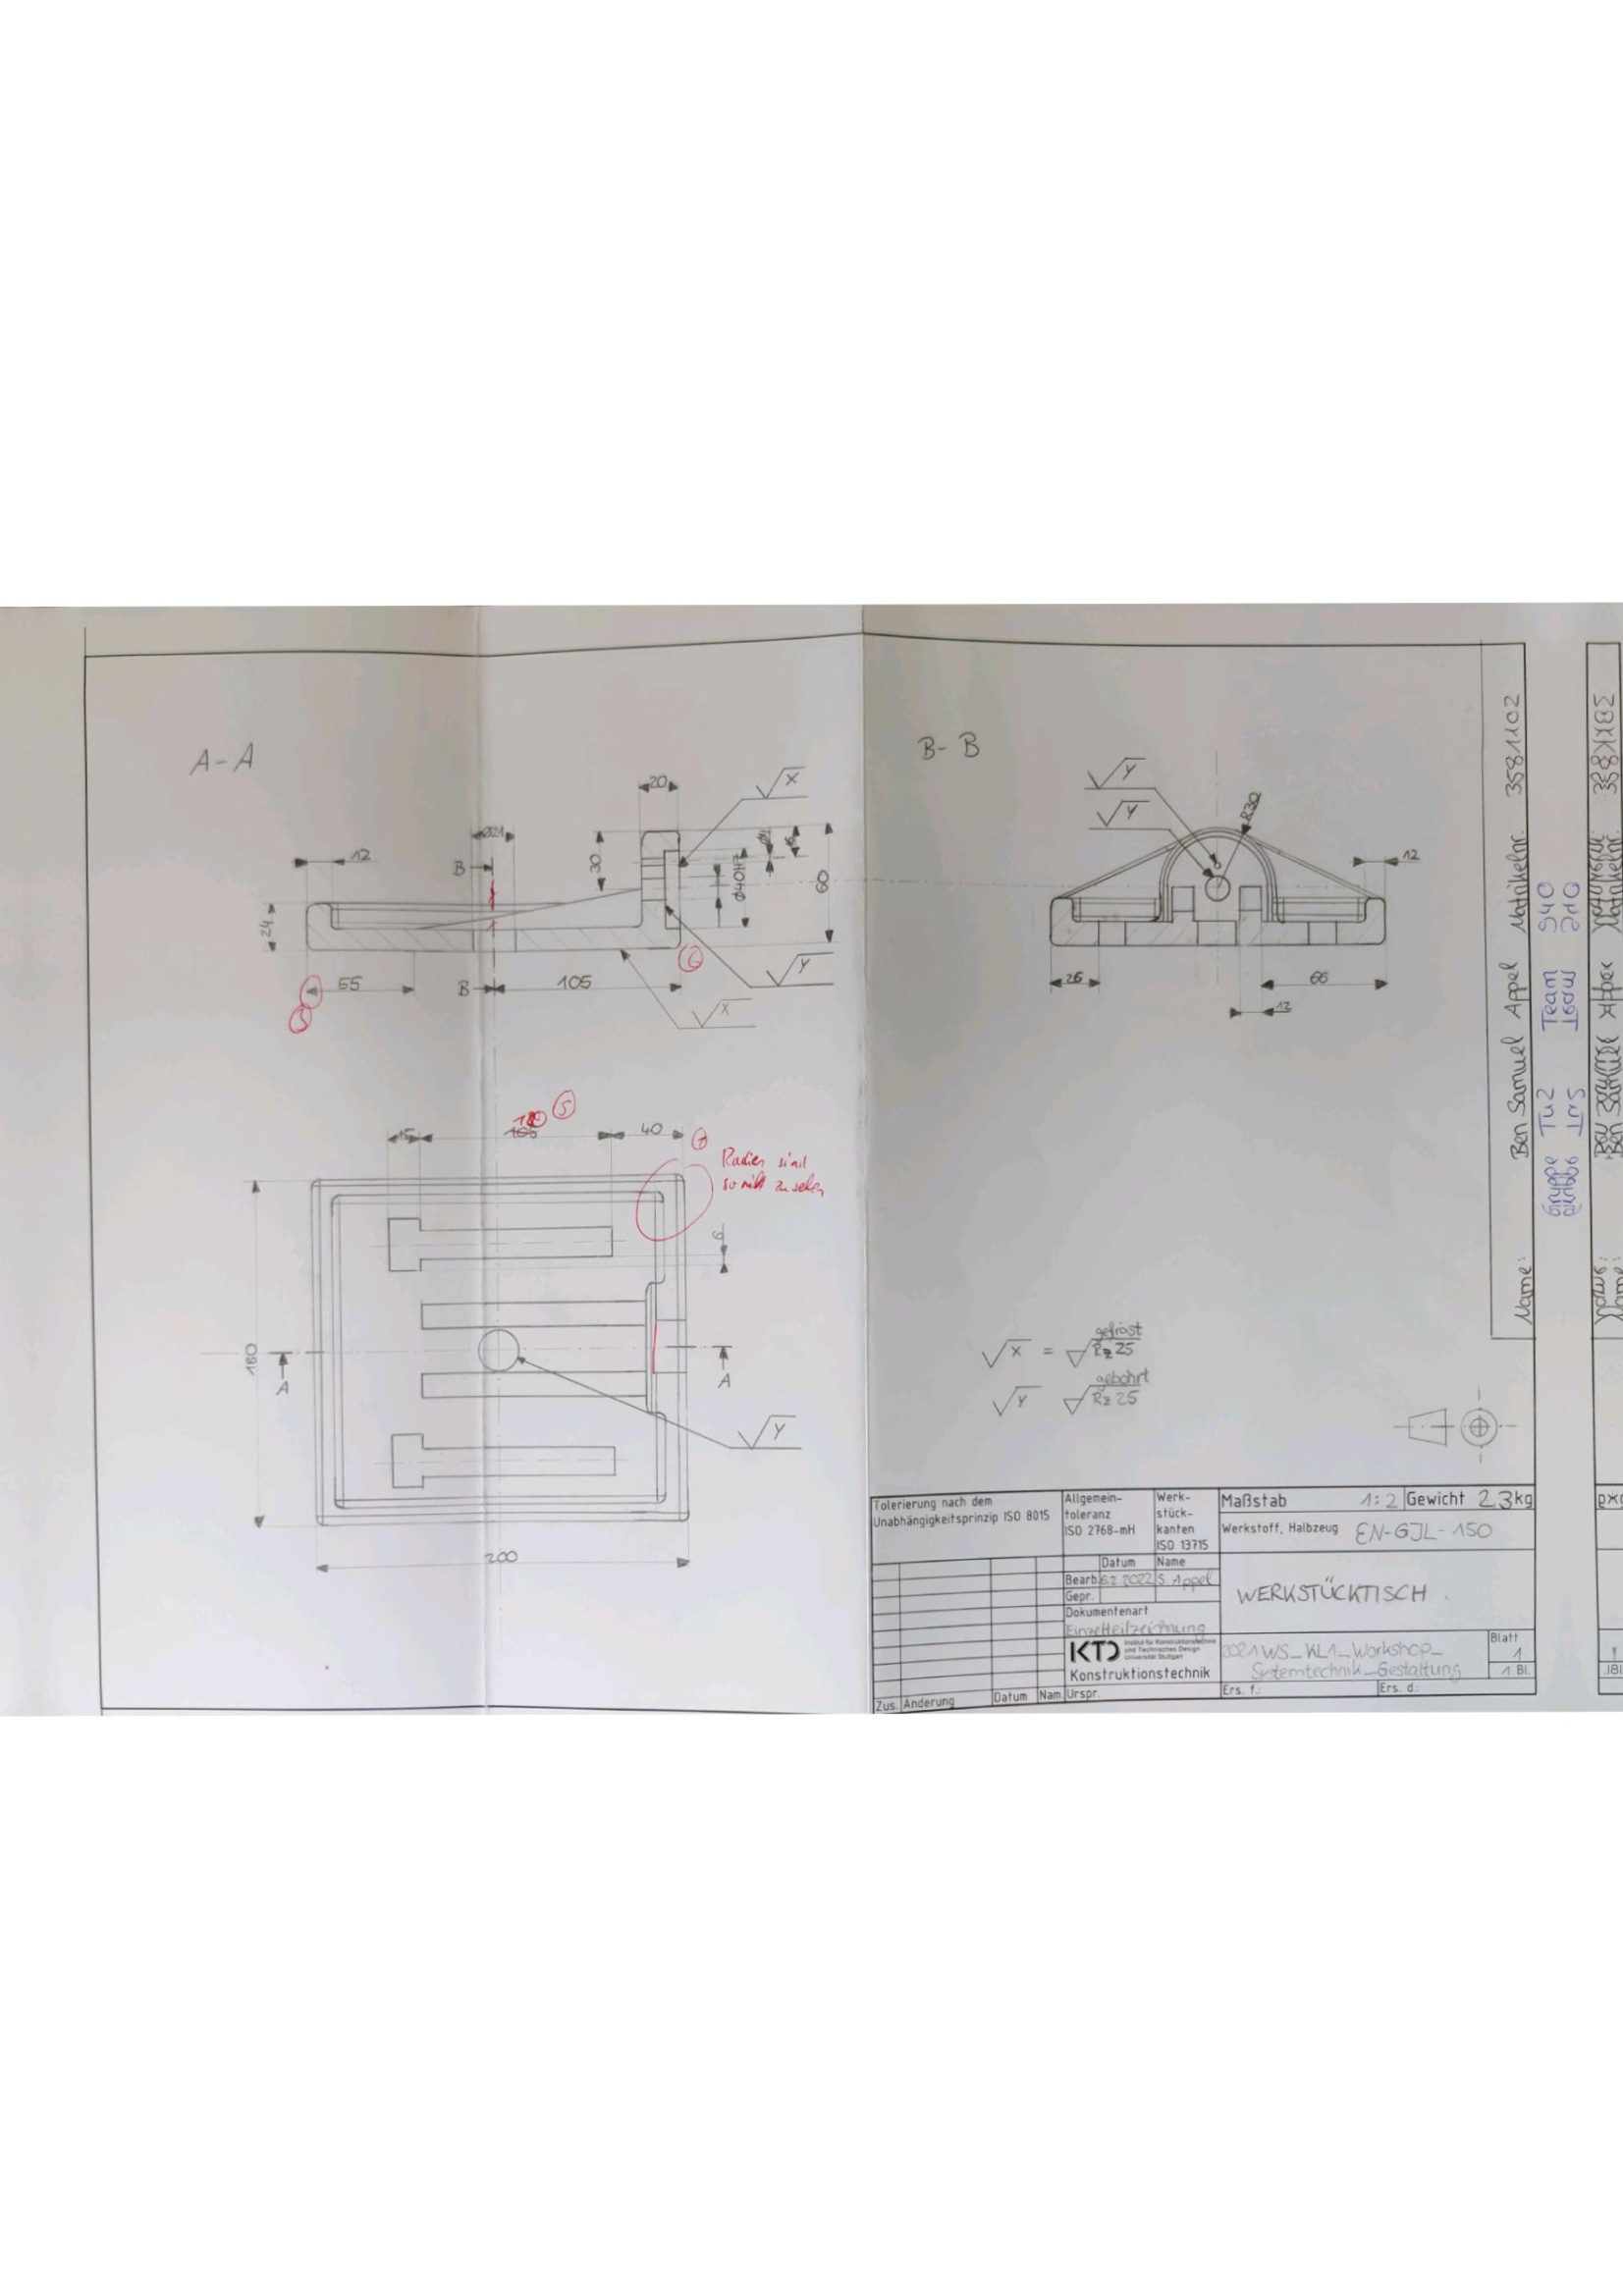 A-A
B-B
20
√X
Ø21
12
B
30
Ø40H7
60
24
6
√Y
55
B
105
5
√X
√Y
√Y
R30
12
26
66
12
180
5
15
105
40
7
Radien sind
so nicht zu sehen
6
160
A
A
√Y
200
√X = gefräst
Rz 25
√Y gebohrt
Rz 25
Name: Ben Samuel Appel Matrikelnr. 3581102
Gruppe Tu2 Team 940
Tolerierung nach dem
Unabhängigkeitsprinzip ISO 8015
Allgemein-
toleranz
ISO 2768-mH
Werk-
stück-
kanten
ISO 13715
Maßstab 1:2 Gewicht 2.3kg
Werkstoff, Halbzeug EN-GJL-150
Datum Name
Bearb. 6.2.2022 S. Appel
Gepr.
Dokumentenart
Einzelteilzeichnung
WERKSTÜCKTISCH
KTD Institut für Konstruktionstechnik
und Technisches Design
Universität Stuttgart
Konstruktionstechnik
2021WS_KL1_Workshop_
Systemtechnik_Gestaltung
Blatt
1
1 Bl.
Zus. Änderung Datum Nam. Urspr. Ers. f.: Ers. d.: